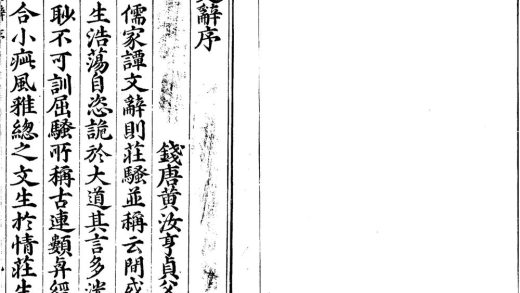 辭序
錢唐黃汝亨貞父
儒家譚文辭則莊騷並稱云間或
生浩蕩自恣詭於大道其言多
眇不可訓屈騷所稱古連類弁經
合小疵風雅總之文生於情莊生
辭序